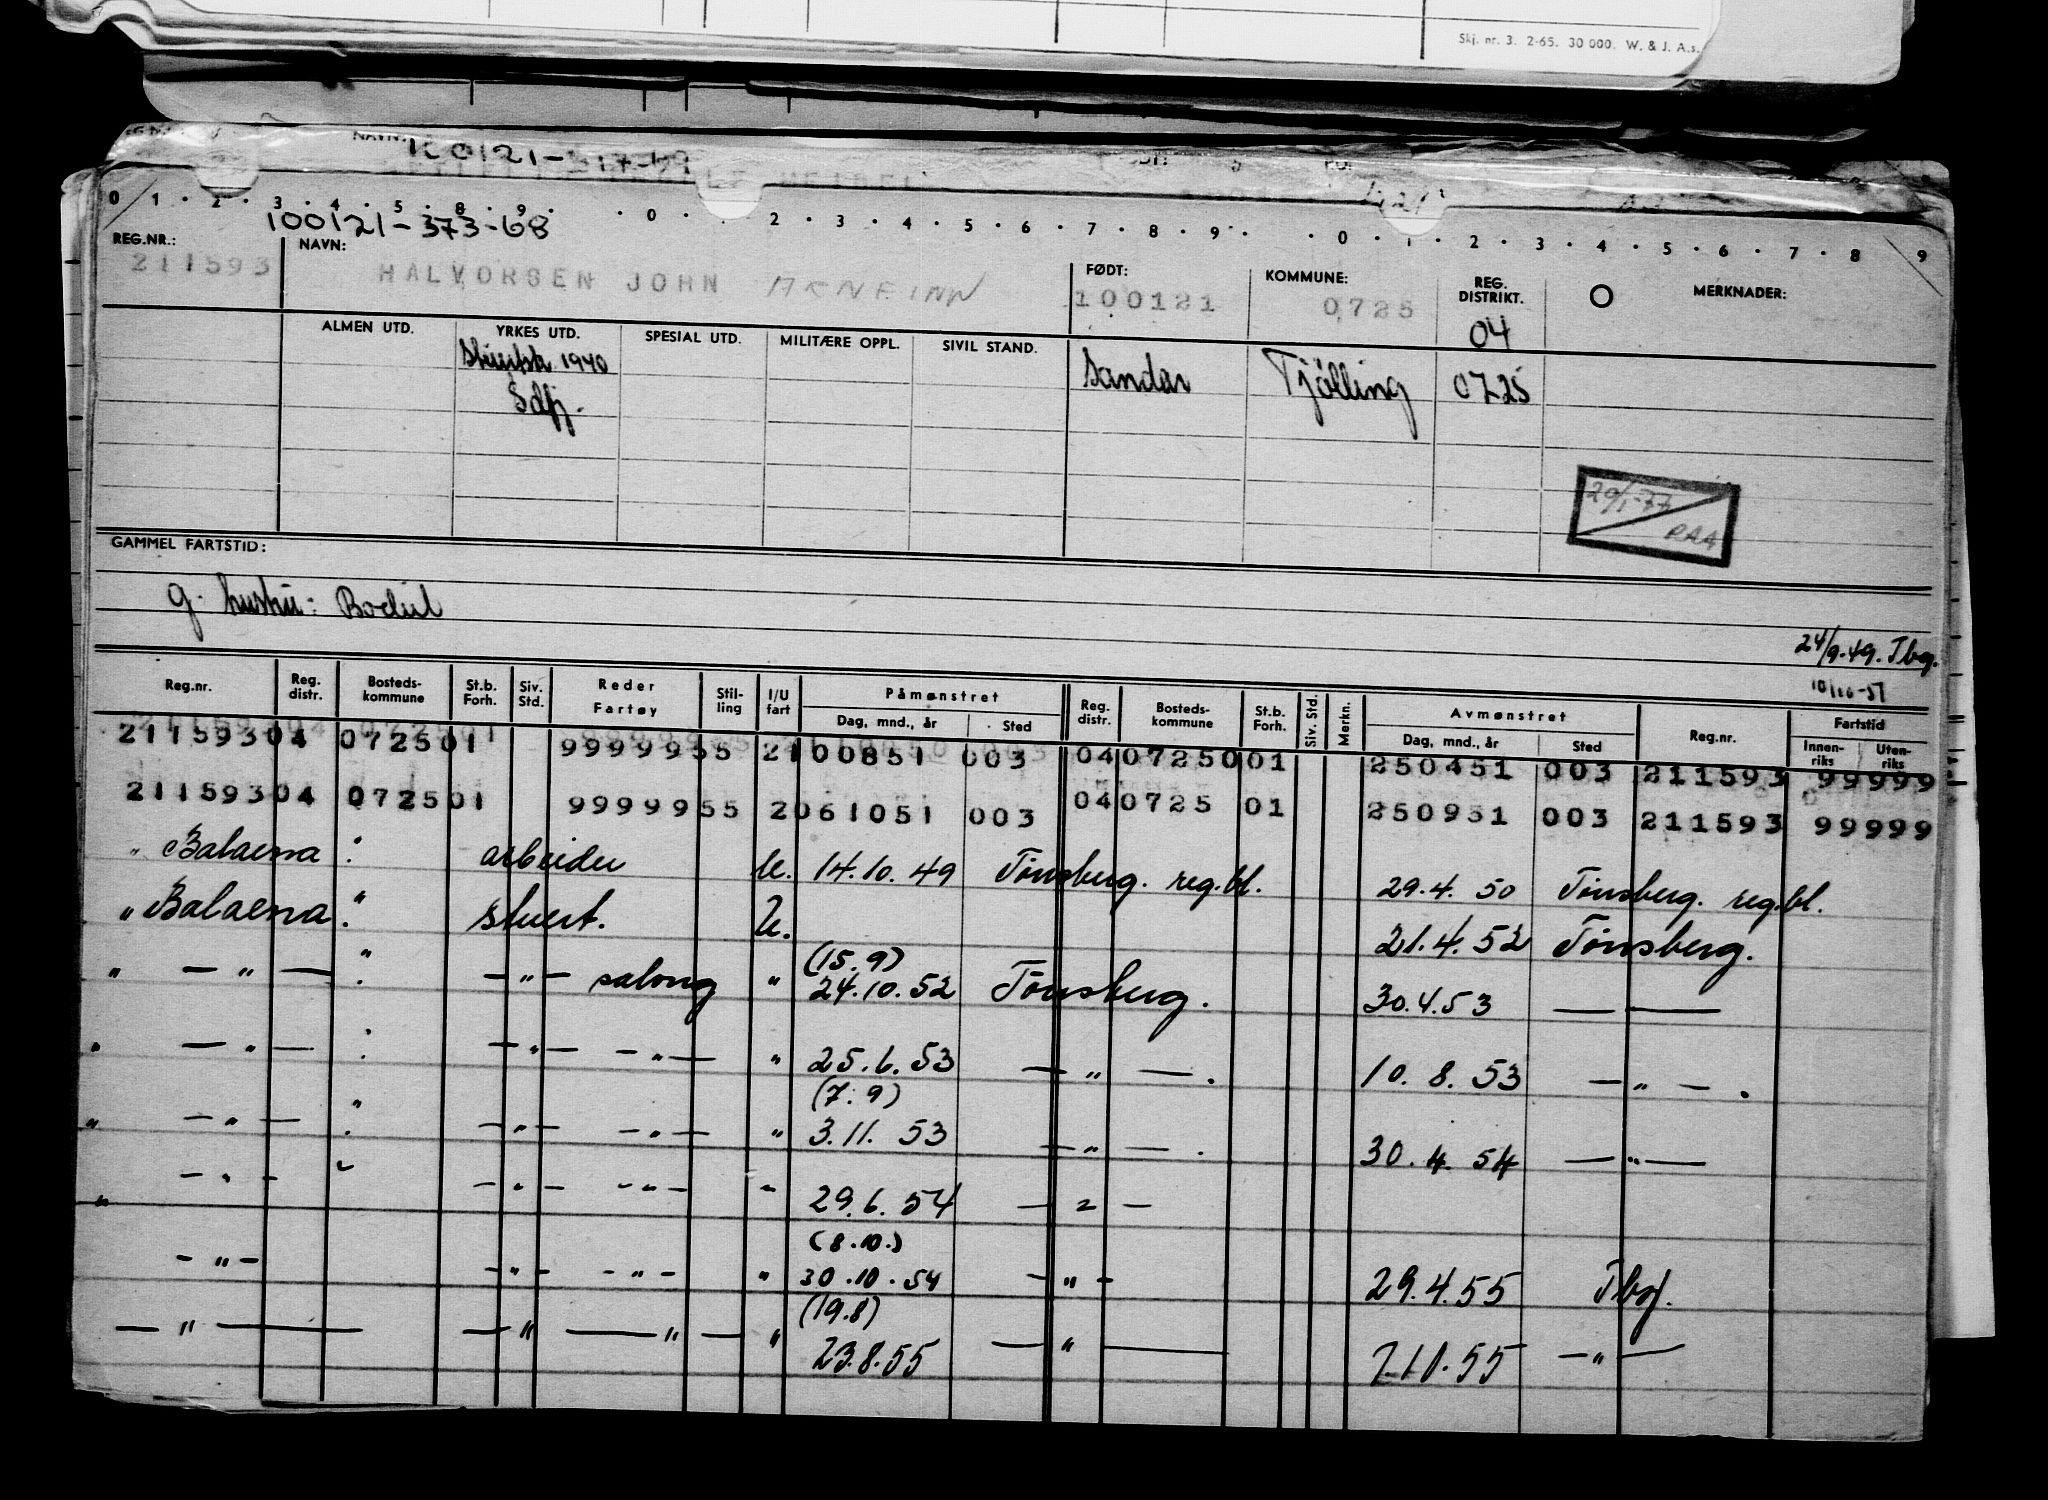 Skj. nr. 3. 2-65. 30 000. W. & J. A.s.
NAVN:
0 1 2 3 4 5 8 9 0 2 3 4 5 6 7 8 9 0 1 2 3 4 5 6 7 8 9
100121-373-68
REG.NR.: NAVN: FØDT: KOMMUNE: REG. DISTRIKT. MERKNADER:
211593 HALVORSEN JOHN ARNFINN 100121 0725 04
ALMEN UTD. YRKES UTD. SPESIAL UTD. MILITÆRE OPPL. SIVIL STAND.
1940 Sandar Tjölling 0725
Sdfj.
29/1-77
RAA
GAMMEL FARTSTID:
g. hustru: Bodil
24/9.49. Tbg.
Reg.nr. Reg. distr. Bosteds- kommune St.b. Forh. Siv. Std. Reder Fartøy Stil- ling I/U fart Påmønstret Reg. distr. Bosteds- kommune St.b. Forh. Siv. Std. Merkn. Avmønstret Reg.nr. Fartstid
Dag, mnd., år Sted Dag, mnd., år Sted Innen- riks Uten- riks
211593 04 0725 01 99999 55 2 100851 003 04 07250 01 250451 003 211593 99999
211593 04 0725 01 99999 55 2 061051 003 04 0725 01 250951 003 211593 99999
" Balaena : arbeider U. 14.10.49 Tönsberg. reg.bl. 29.4.50 Tönsberg. reg.bl.
" Balaena " stuert. U. 21.4.52 Tönsberg.
(15.9)
" — " — " — " — salong " 24.10.52 Tönsberg. 30.4.53 — —
" — " — : — " — — " — " 25.6.53 — " — . 10.8.53 — " — .
(7.9)
" — " — " — " — — " — " 3.11.53 — " — . 30.4.54 — " —
" — " — — " — — " — " 29.6.54 — " —
(8.10.)
— " — — " — — " — " 30.10.54 — " — 29.4.55 Tbg.
(19.8)
— " — — " — — " — " 23.8.55 — " — — " —